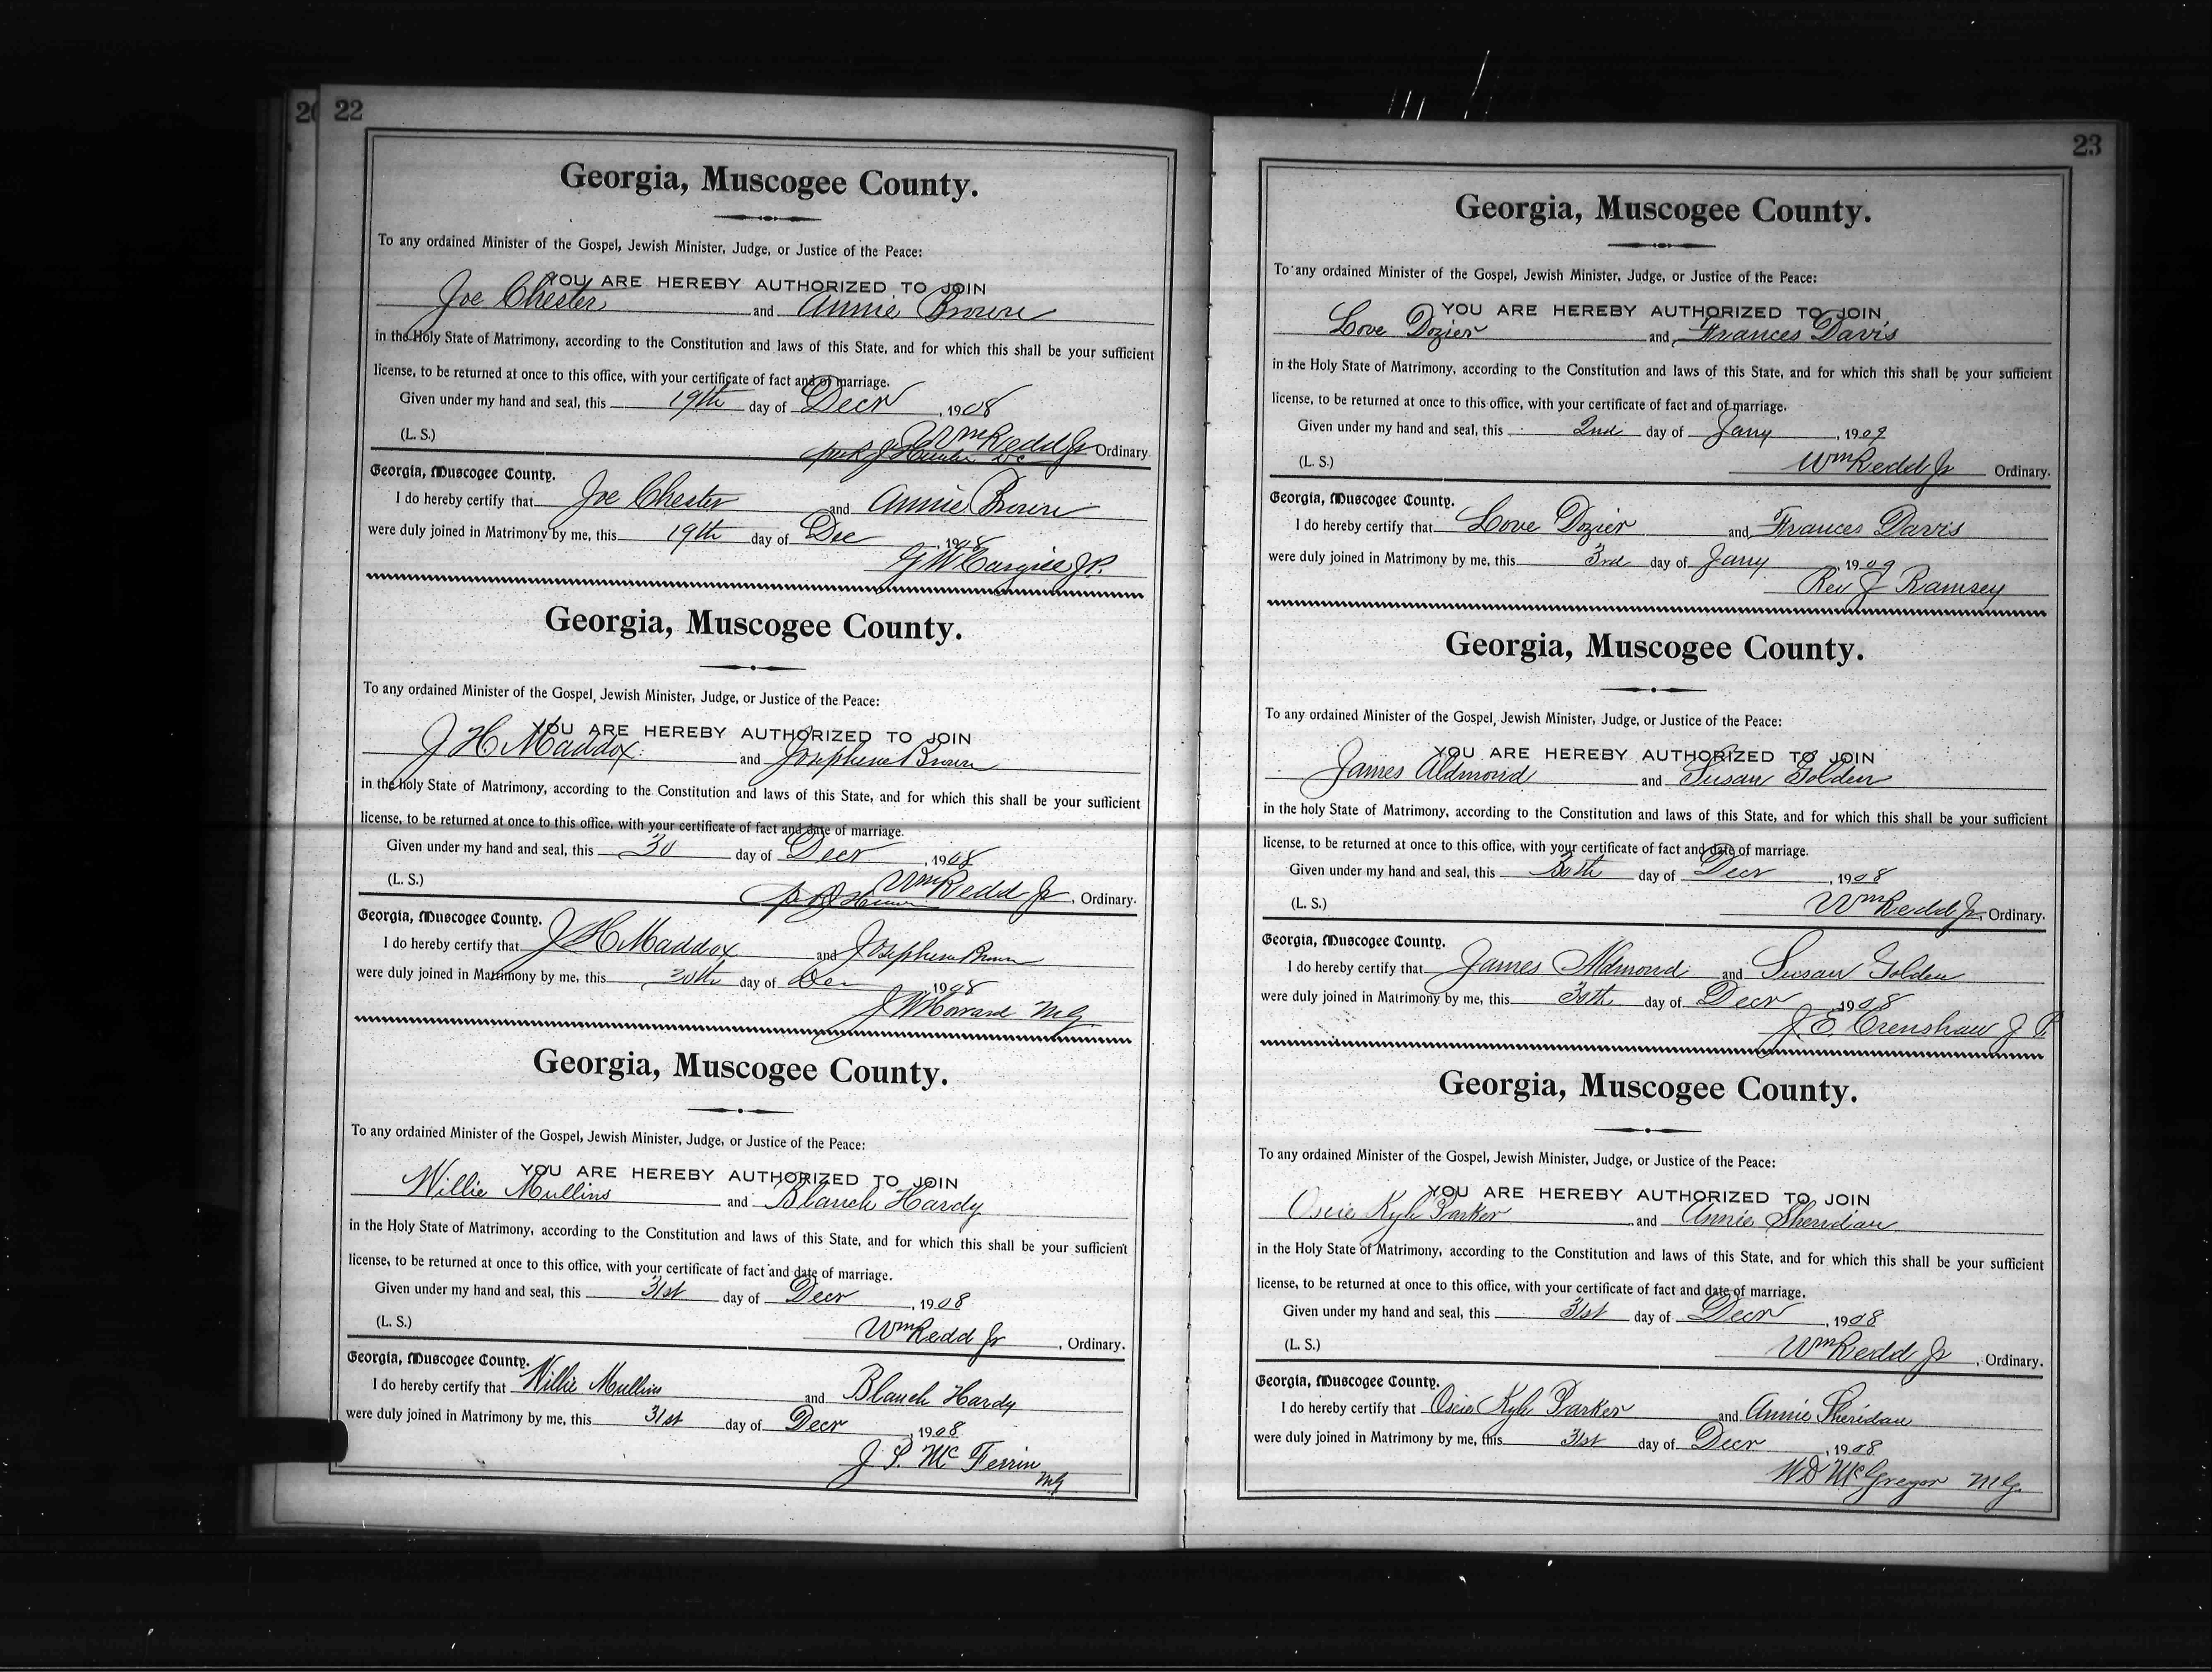 20
22
Georgia, Muscogee County.
To any ordained Minister of the Gospel, Jewish Minister, Judge, or Justice of the Peace:
YOU ARE HEREBY AUTHORIZED TO JOIN
Joe Chester and Annie Brown
in the Holy State of Matrimony, according to the Constitution and laws of this State, and for which this shall be your sufficient
license, to be returned at once to this office, with your certificate of fact and of marriage.
Given under my hand and seal, this 19th day of Decr, 1908
(L. S.) Wm Redd Jr Ordinary.
Georgia, Muscogee County.
I do hereby certify that Joe Chester and Annie Brown
were duly joined in Matrimony by me, this 19th day of Dec, 1908
G W Cargill J P.
Georgia, Muscogee County.
To any ordained Minister of the Gospel, Jewish Minister, Judge, or Justice of the Peace:
YOU ARE HEREBY AUTHORIZED TO JOIN
J H Maddox and Josephene Brown
in the holy State of Matrimony, according to the Constitution and laws of this State, and for which this shall be your sufficient
license, to be returned at once to this office, with your certificate of fact and date of marriage.
Given under my hand and seal, this 30 day of Decr, 1908
(L. S.) Wm Redd Jr, Ordinary.
Georgia, Muscogee County.
I do hereby certify that J H Maddox and Josephene Brown
were duly joined in Matrimony by me, this 30th day of Dec 1908
J W Howard M G
Georgia, Muscogee County.
To any ordained Minister of the Gospel, Jewish Minister, Judge, or Justice of the Peace:
YOU ARE HEREBY AUTHORIZED TO JOIN
Willie Mullins and Blanch Hardy
in the Holy State of Matrimony, according to the Constitution and laws of this State, and for which this shall be your sufficient
license, to be returned at once to this office, with your certificate of fact and date of marriage.
Given under my hand and seal, this 31st day of Decr, 1908
(L. S.) Wm Redd Jr, Ordinary.
Georgia, Muscogee County.
I do hereby certify that Willie Mullins and Blanch Hardy
were duly joined in Matrimony by me, this 31st day of Decr, 1908
J. P. McFerrin
MG
23
Georgia, Muscogee County.
To any ordained Minister of the Gospel, Jewish Minister, Judge, or Justice of the Peace:
YOU ARE HEREBY AUTHORIZED TO JOIN
Love Dozier and Frances Davis
in the Holy State of Matrimony, according to the Constitution and laws of this State, and for which this shall be your sufficient
license, to be returned at once to this office, with your certificate of fact and of marriage.
Given under my hand and seal, this 2nd day of Jany, 1909
(L. S.) Wm Redd Jr Ordinary.
Georgia, Muscogee County.
I do hereby certify that Love Dozier and Frances Davis
were duly joined in Matrimony by me, this 3rd day of Jany, 1909
Rev J Ramsey
Georgia, Muscogee County.
To any ordained Minister of the Gospel, Jewish Minister, Judge, or Justice of the Peace:
YOU ARE HEREBY AUTHORIZED TO JOIN
James Aldmond and Susan Golden
in the holy State of Matrimony, according to the Constitution and laws of this State, and for which this shall be your sufficient
license, to be returned at once to this office, with your certificate of fact and date of marriage.
Given under my hand and seal, this 30th day of Decr, 1908
(L. S.) Wm Redd Jr, Ordinary.
Georgia, Muscogee County.
I do hereby certify that James Aldmond and Susan Golden
were duly joined in Matrimony by me, this 30th day of Decr, 1908
J. E. Crenshaw J P
Georgia, Muscogee County.
To any ordained Minister of the Gospel, Jewish Minister, Judge, or Justice of the Peace:
YOU ARE HEREBY AUTHORIZED TO JOIN
Oscie Kyle Parker and Annie Sheridan
in the Holy State of Matrimony, according to the Constitution and laws of this State, and for which this shall be your sufficient
license, to be returned at once to this office, with your certificate of fact and date of marriage.
Given under my hand and seal, this 31st day of Decr, 1908
(L. S.) Wm Redd Jr, Ordinary.
Georgia, Muscogee County.
I do hereby certify that Oscie Kyle Parker and Annie Sheridan
were duly joined in Matrimony by me, this 31st day of Decr, 1908
W D McGregor M G.